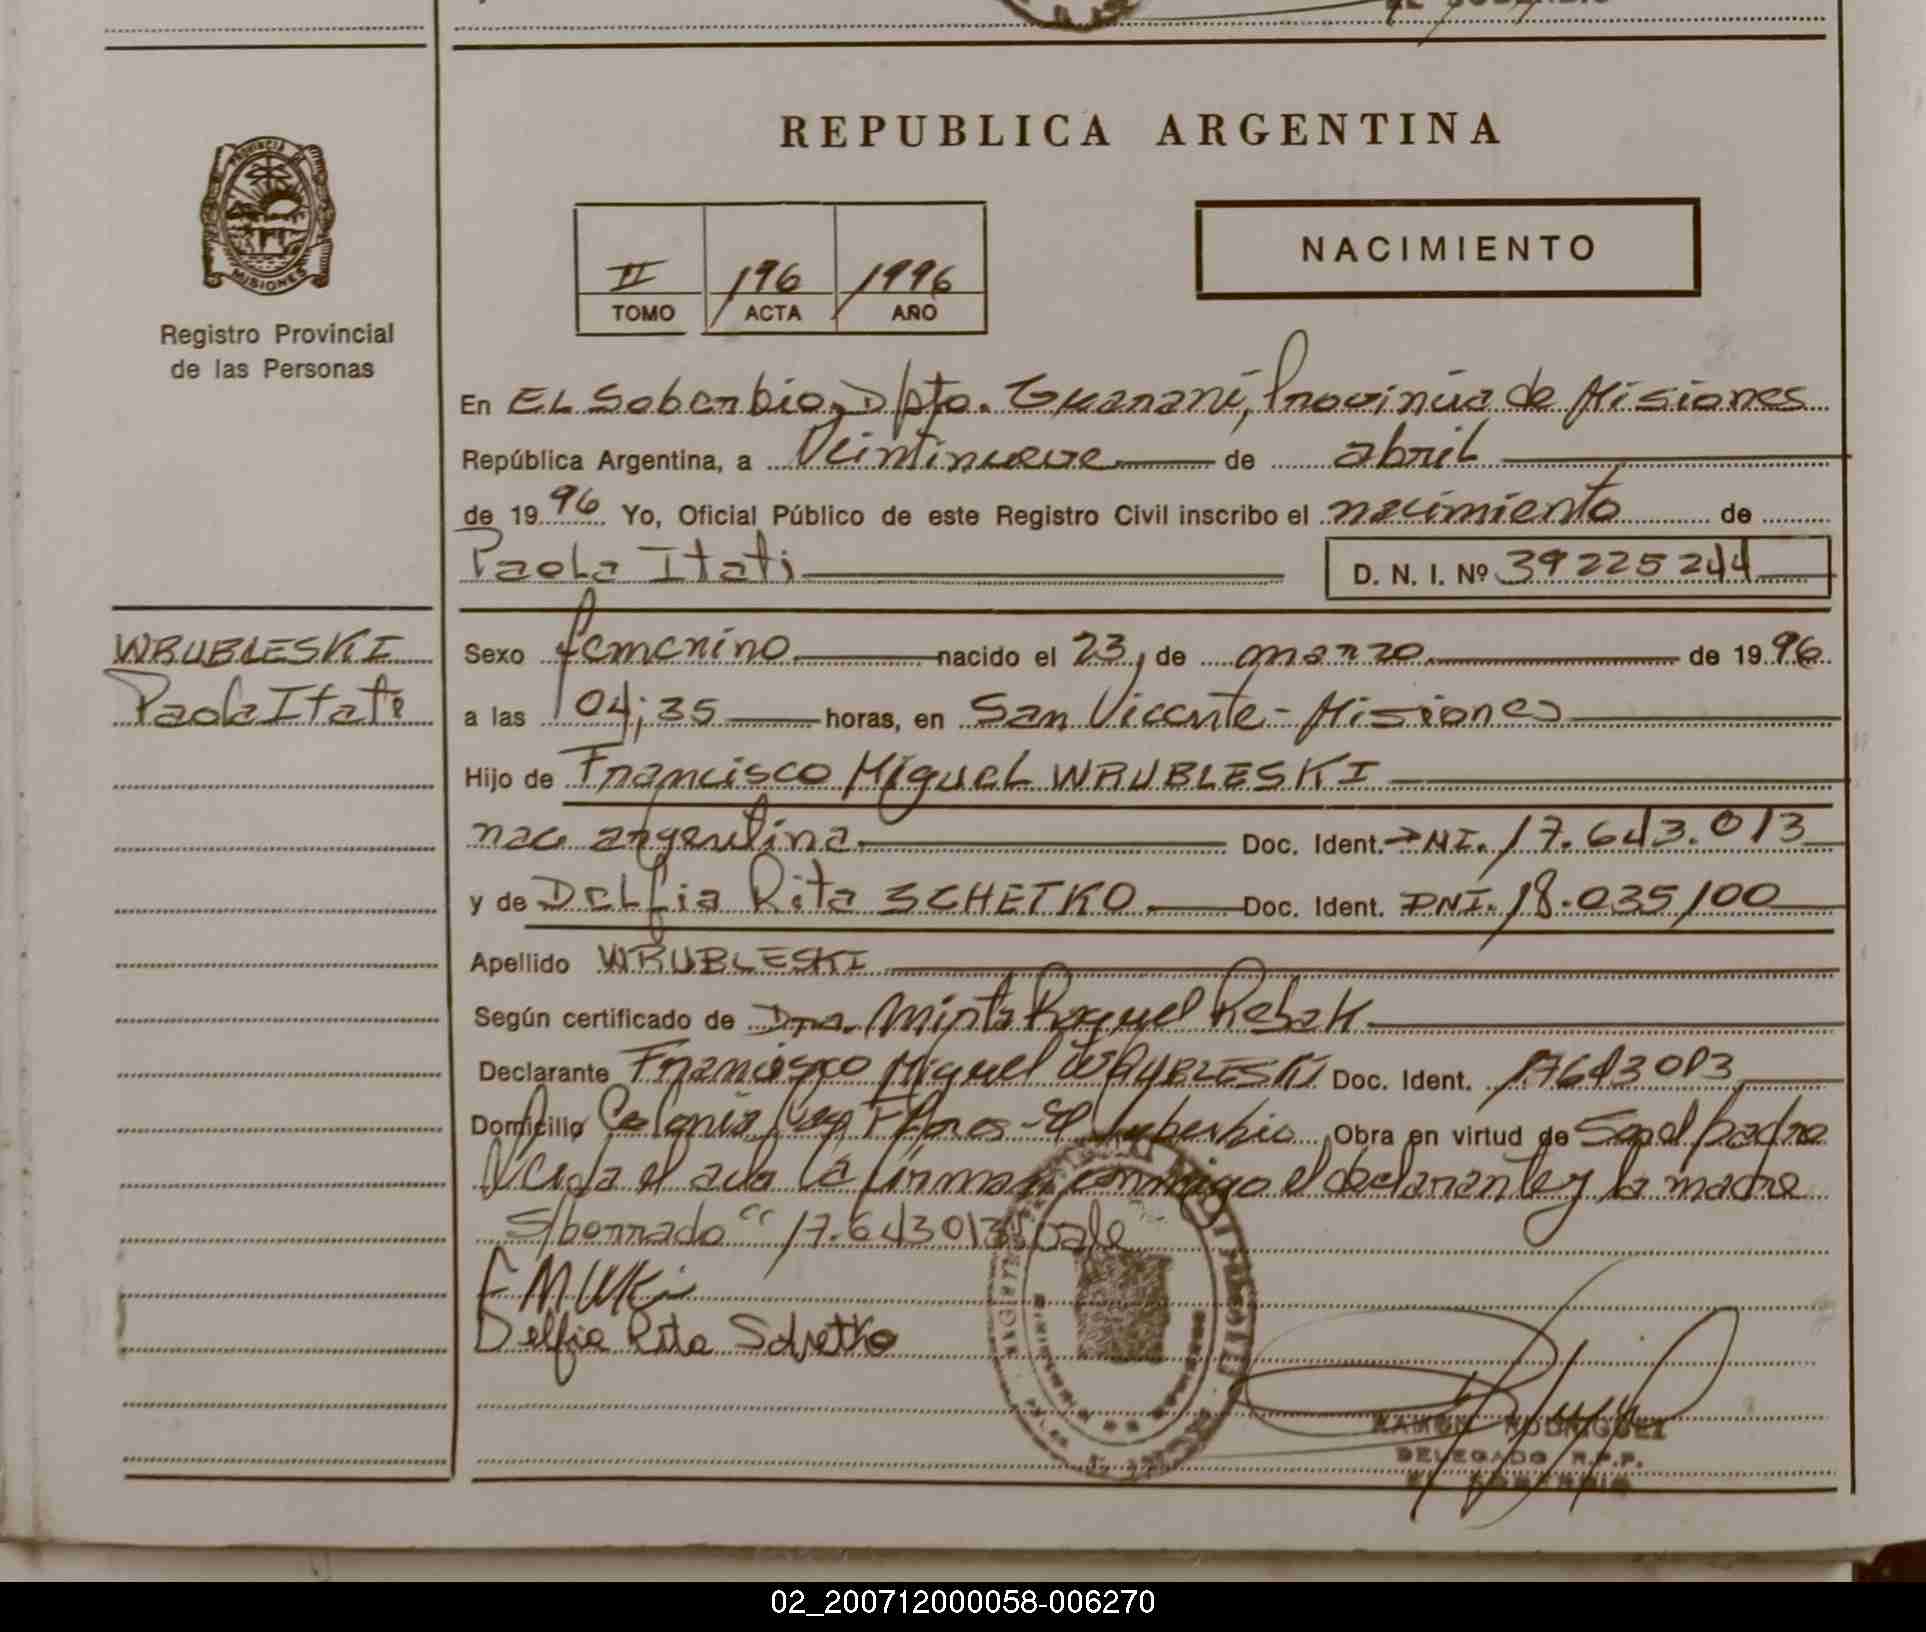 REPUBLICA ARGENTINA
PROVINCIA DE
MISIONES
Registro Provincial
de las Personas
II 196 1996
TOMO ACTA AÑO
NACIMIENTO
En EL Soberbio, Dpto. Guarani, Provincia de Misiones
República Argentina, a Veintinueve de abril
de 1996 Yo, Oficial Público de este Registro Civil inscribo el nacimiento de
Paola Itati D. N. I. Nº 39225244
WRUBLESKI
Paola Itati
Sexo femenino nacido el 23, de marzo de 1996
a las 04;35 horas, en San Vicente - Misiones
Hijo de Francisco Miguel WRUBLESKI
nac argentina Doc. Ident. DNI. 17.643.013
y de Delfia Rita SCHETKO Doc. Ident. DNI. 18.035100
Apellido WRUBLESKI
Según certificado de Dra. Mirta Raquel
Declarante Francisco Miguel WRUBLESKI Doc. Ident. 17643013
Domicilio Colonia Flores - El Soberbio Obra en virtud de Ser el padre
Leida el acta la firman conmigo el declarante y la madre
S/borrado "17.643013" vale
Delfia Rita Schetko
RAMON RODRIGUEZ
DELEGADO R.P.P.
EL SOBERBIO
02_200712000058-006270